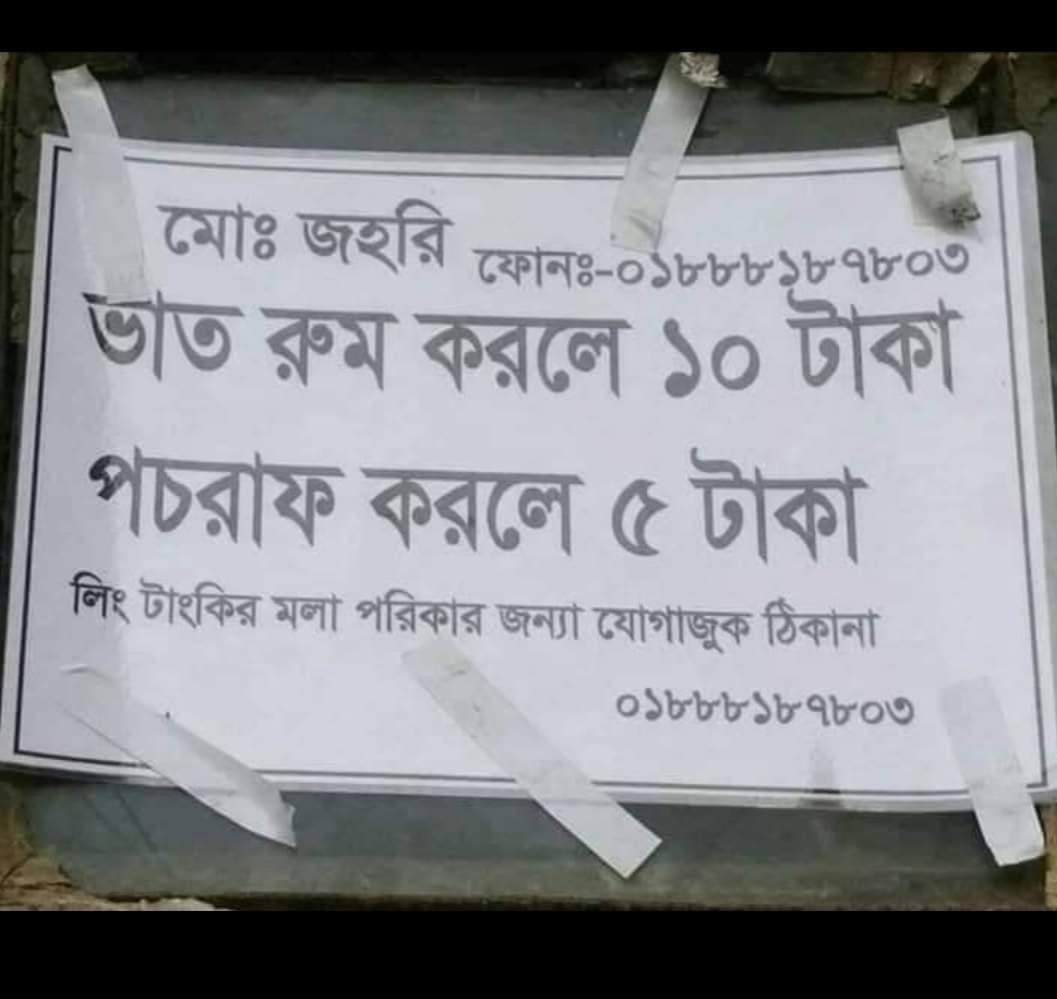 মোঃ জহরি ফোনঃ-০১৮৮৮১৮৭৮০৩
ভাত রুম করলে ১০ টাকা
পচরাফ করলে ৫ টাকা
লিং টাংকির মলা পরিকার জন্যা যোগাজুক ঠিকানা
০১৮৮৮১৮৭৮০৩